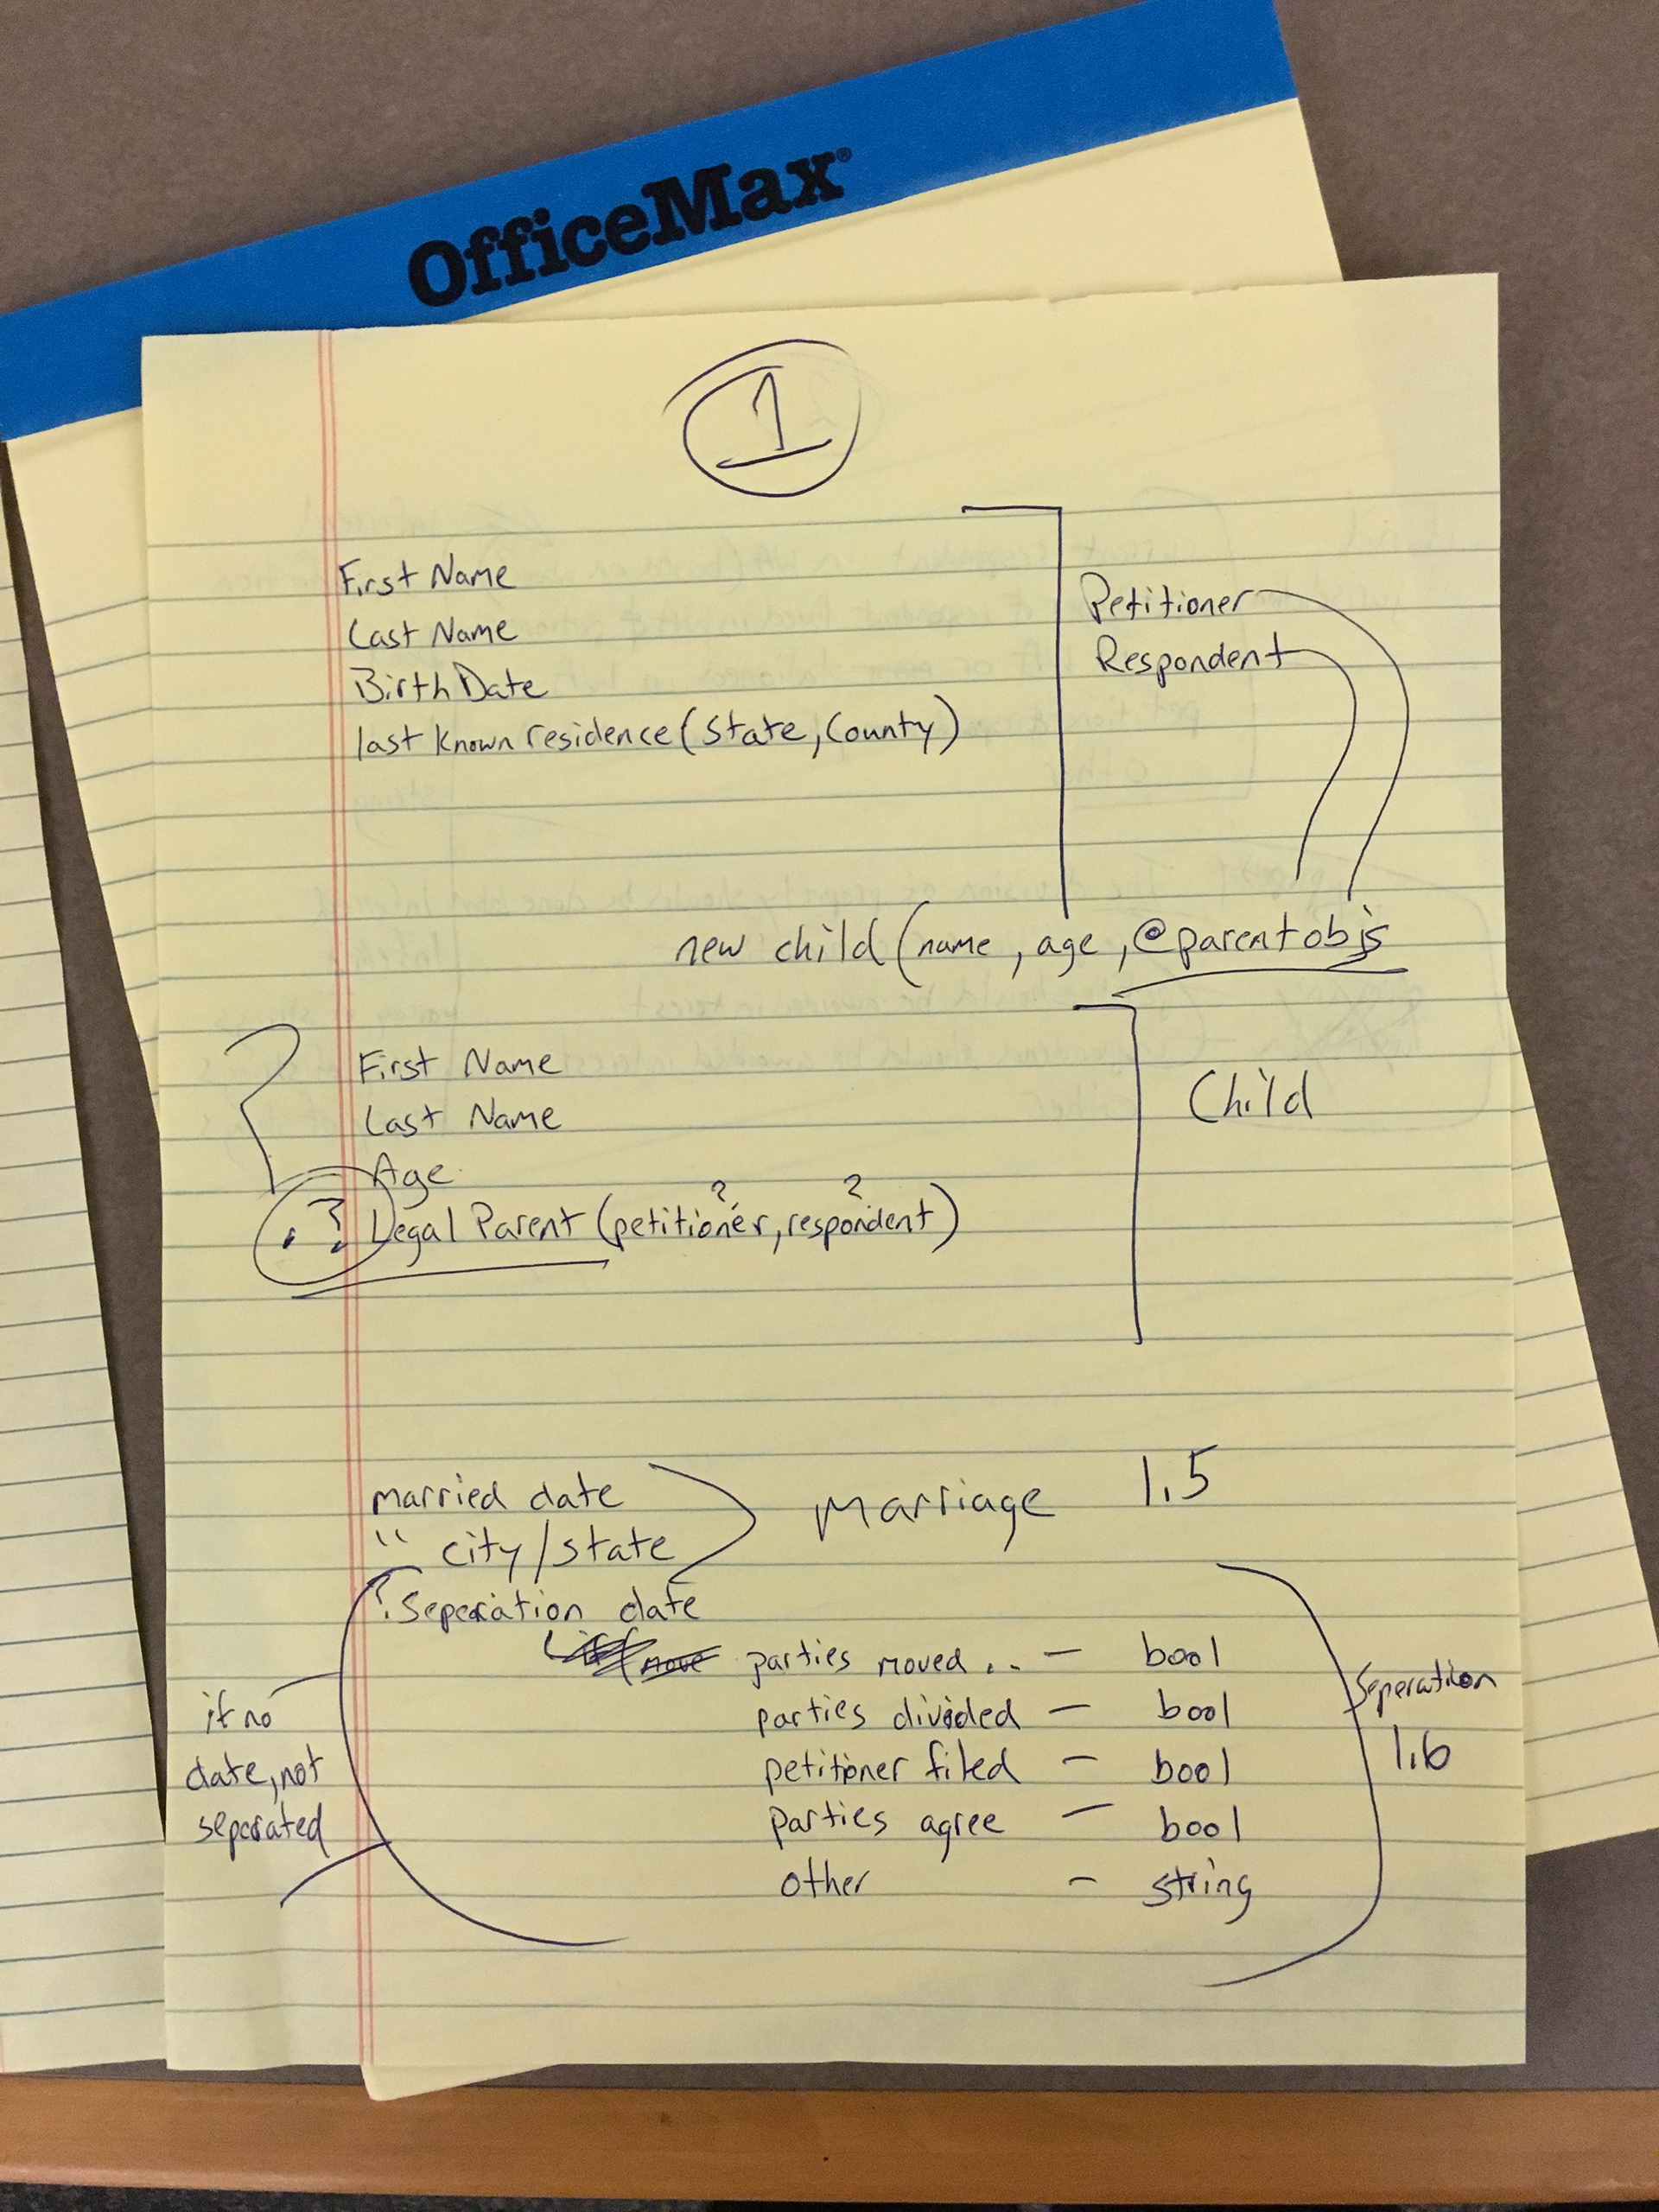 OfficeMax®
1
First Name
Last Name
Birth Date
last known residence (state, County)
Petitioner
Respondent
new child (name, age, @parentobjs
First Name
Last Name
Age
? Legal Parent (petitioner, respondent)
? ?
Child
married date
" city/state
Marriage 1.5
? Seperation date
parties moved .. — bool
parties divided — bool
petitioner filed — bool
parties agree — bool
other - string
if no
date, not
seperated
Seperation
1.6